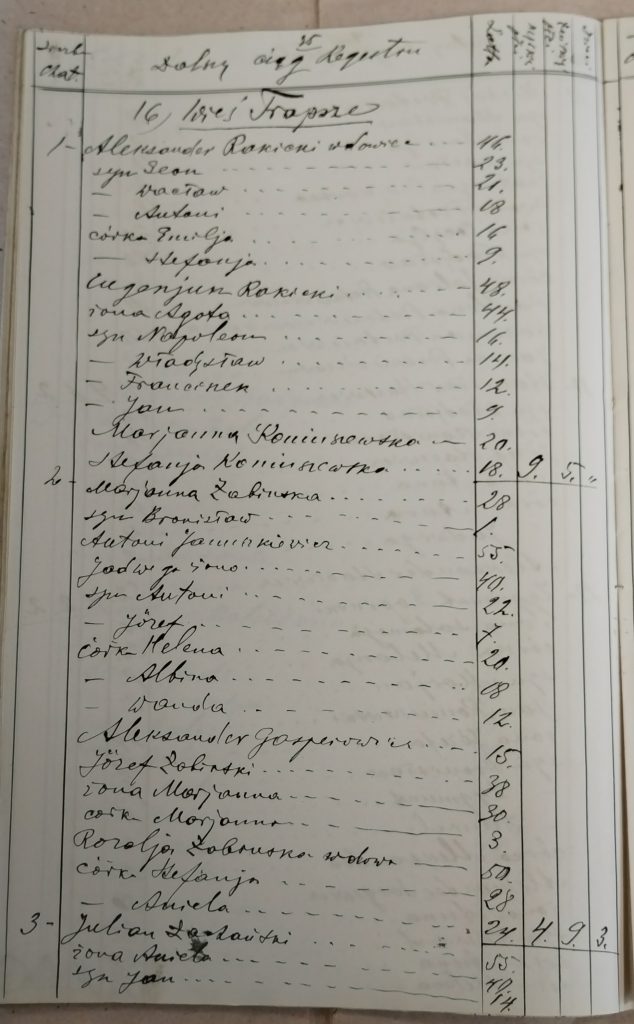 35
Dolny ciąg Regestru
Chat.
Latta
16) Wieś Trapsze
1- Aleksander Rakicki wdowiec 46.
syn Leon 23.
- Wacław 21.
- Antoni 18
córka Emilja 16
- Stefanja 9.
Eugenjusz Rakicki 48.
żona Agota 44.
syn Napoleon 16.
- Władysław 14.
- Franciszek 12.
- Jan 9.
Marjanna Koniuszewska 20.
Stefanja Koniuszewska 18. 9. 5. "
2- Marjanna Żabinska 28
syn Bronisław 1.
Antoni Januszkiewicz 55.
Jadwiga żona 40.
syn Antoni 22.
- Józef 7.
córk Helena 20.
- Albina 18
- Wanda 12.
Aleksander Gasperowicz 15.
Józef Żabinski 38
żona Marjanna 30.
córk Marjanna 3.
Rozalja Żabinska wdowa 50.
córka Stefanja 28.
- Aniela 24. 4. 9. 3.
3- Julian 55.
żona Aniela 40.
syn Jan 14.